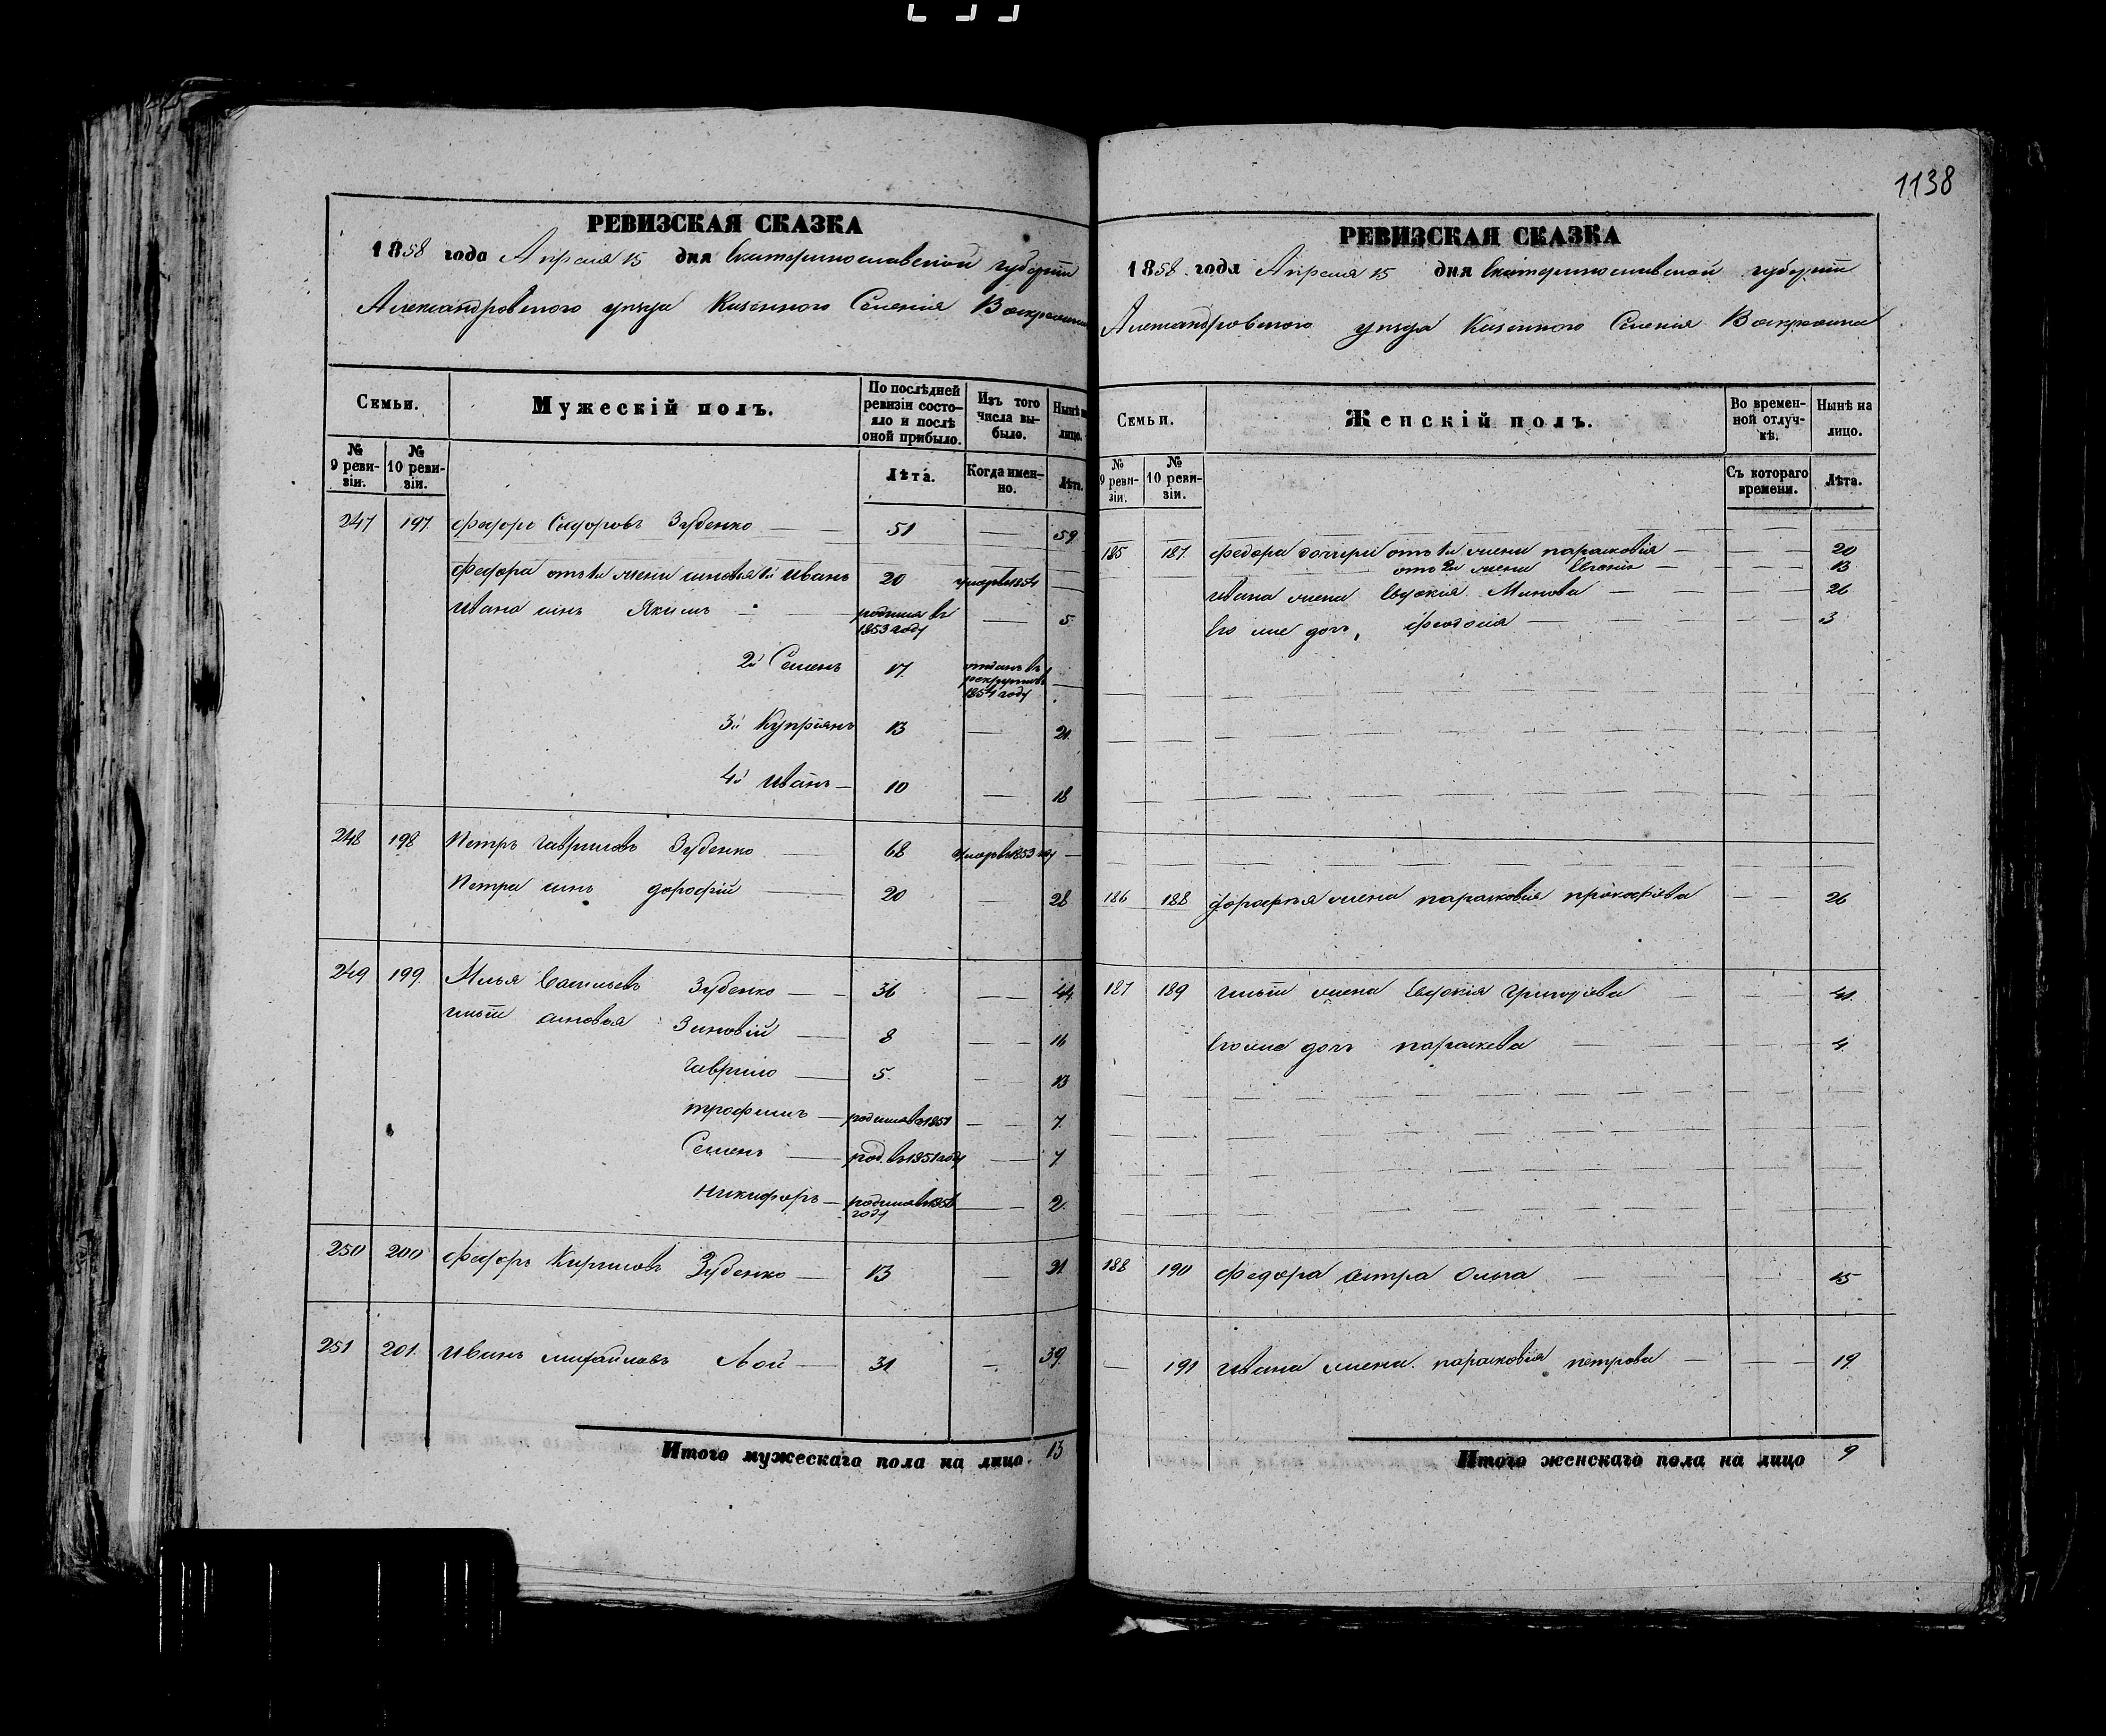 1138
РЕВИЗСКАЯ СКАЗКА
1858 года Апреля 15 дня Екатеринославской губернии
Александровского уезда Казенного Селения Воскресенки
Семьи. Мужескій полъ. По послѣдней ревизіи состояло и послѣ оной прибыло. Изъ того числа выбыло. Нынѣ на лицо.
№ 9 ревизіи. № 10 ревизіи. Лѣта. Когда именно. Лѣта.
247 197 Федоръ Сидоровъ Зубенко 51 59
Федора отъ 1й жены сыновья 1й Иванъ 20 умеръ 1854
Ивана сынъ Якимъ родился въ 1853 году 5
2й Семенъ 17 отданъ въ рекруты въ 1854 году
3й Купріянъ 13 21
4й Иванъ 10 18
248 198 Петръ Гавриловъ Зубенко 68 умеръ 1853 году
Петра сынъ Дорофій 20 28
249 199 Илья Васильевъ Зубенко 36 44
Ильи сыновья Зиновій 8 16
Гаврило 5 13
Трофимъ родился въ 1851 7
Семенъ род. въ 1851 году 7
Никифоръ родился въ 1856 году 2
250 200 Федоръ Кириловъ Зубенко 13 21
251 201 Иванъ Михайловъ Лой 31 39
Итого мужескаго пола на лицо 13
РЕВИЗСКАЯ СКАЗКА
1858 года Апреля 15 дня Екатеринославской губернии
Александровского уезда Казенного Селения Воскресенка
Семьи. Женскій полъ. Во временной отлучкѣ. Нынѣ на лицо.
№ 9 ревизіи. № 10 ревизіи. Съ котораго времени. Лѣта.
185 187 Федора дочери отъ 1й жены Парасковія 20
отъ 2й жены Евгенія 13
Ивана жена Евдокія Минова 26
Его же дочь Феодосія 3
186 188 Дорофея жена Парасковія Прокофіева 26
187 189 Ильи жена Евдокія Григорьева 41
Его же дочь Параскева 4
188 190 Федора сестра Ольга 15
191 Ивана жена Парасковія Петрова 19
Итого женскаго пола на лицо 9